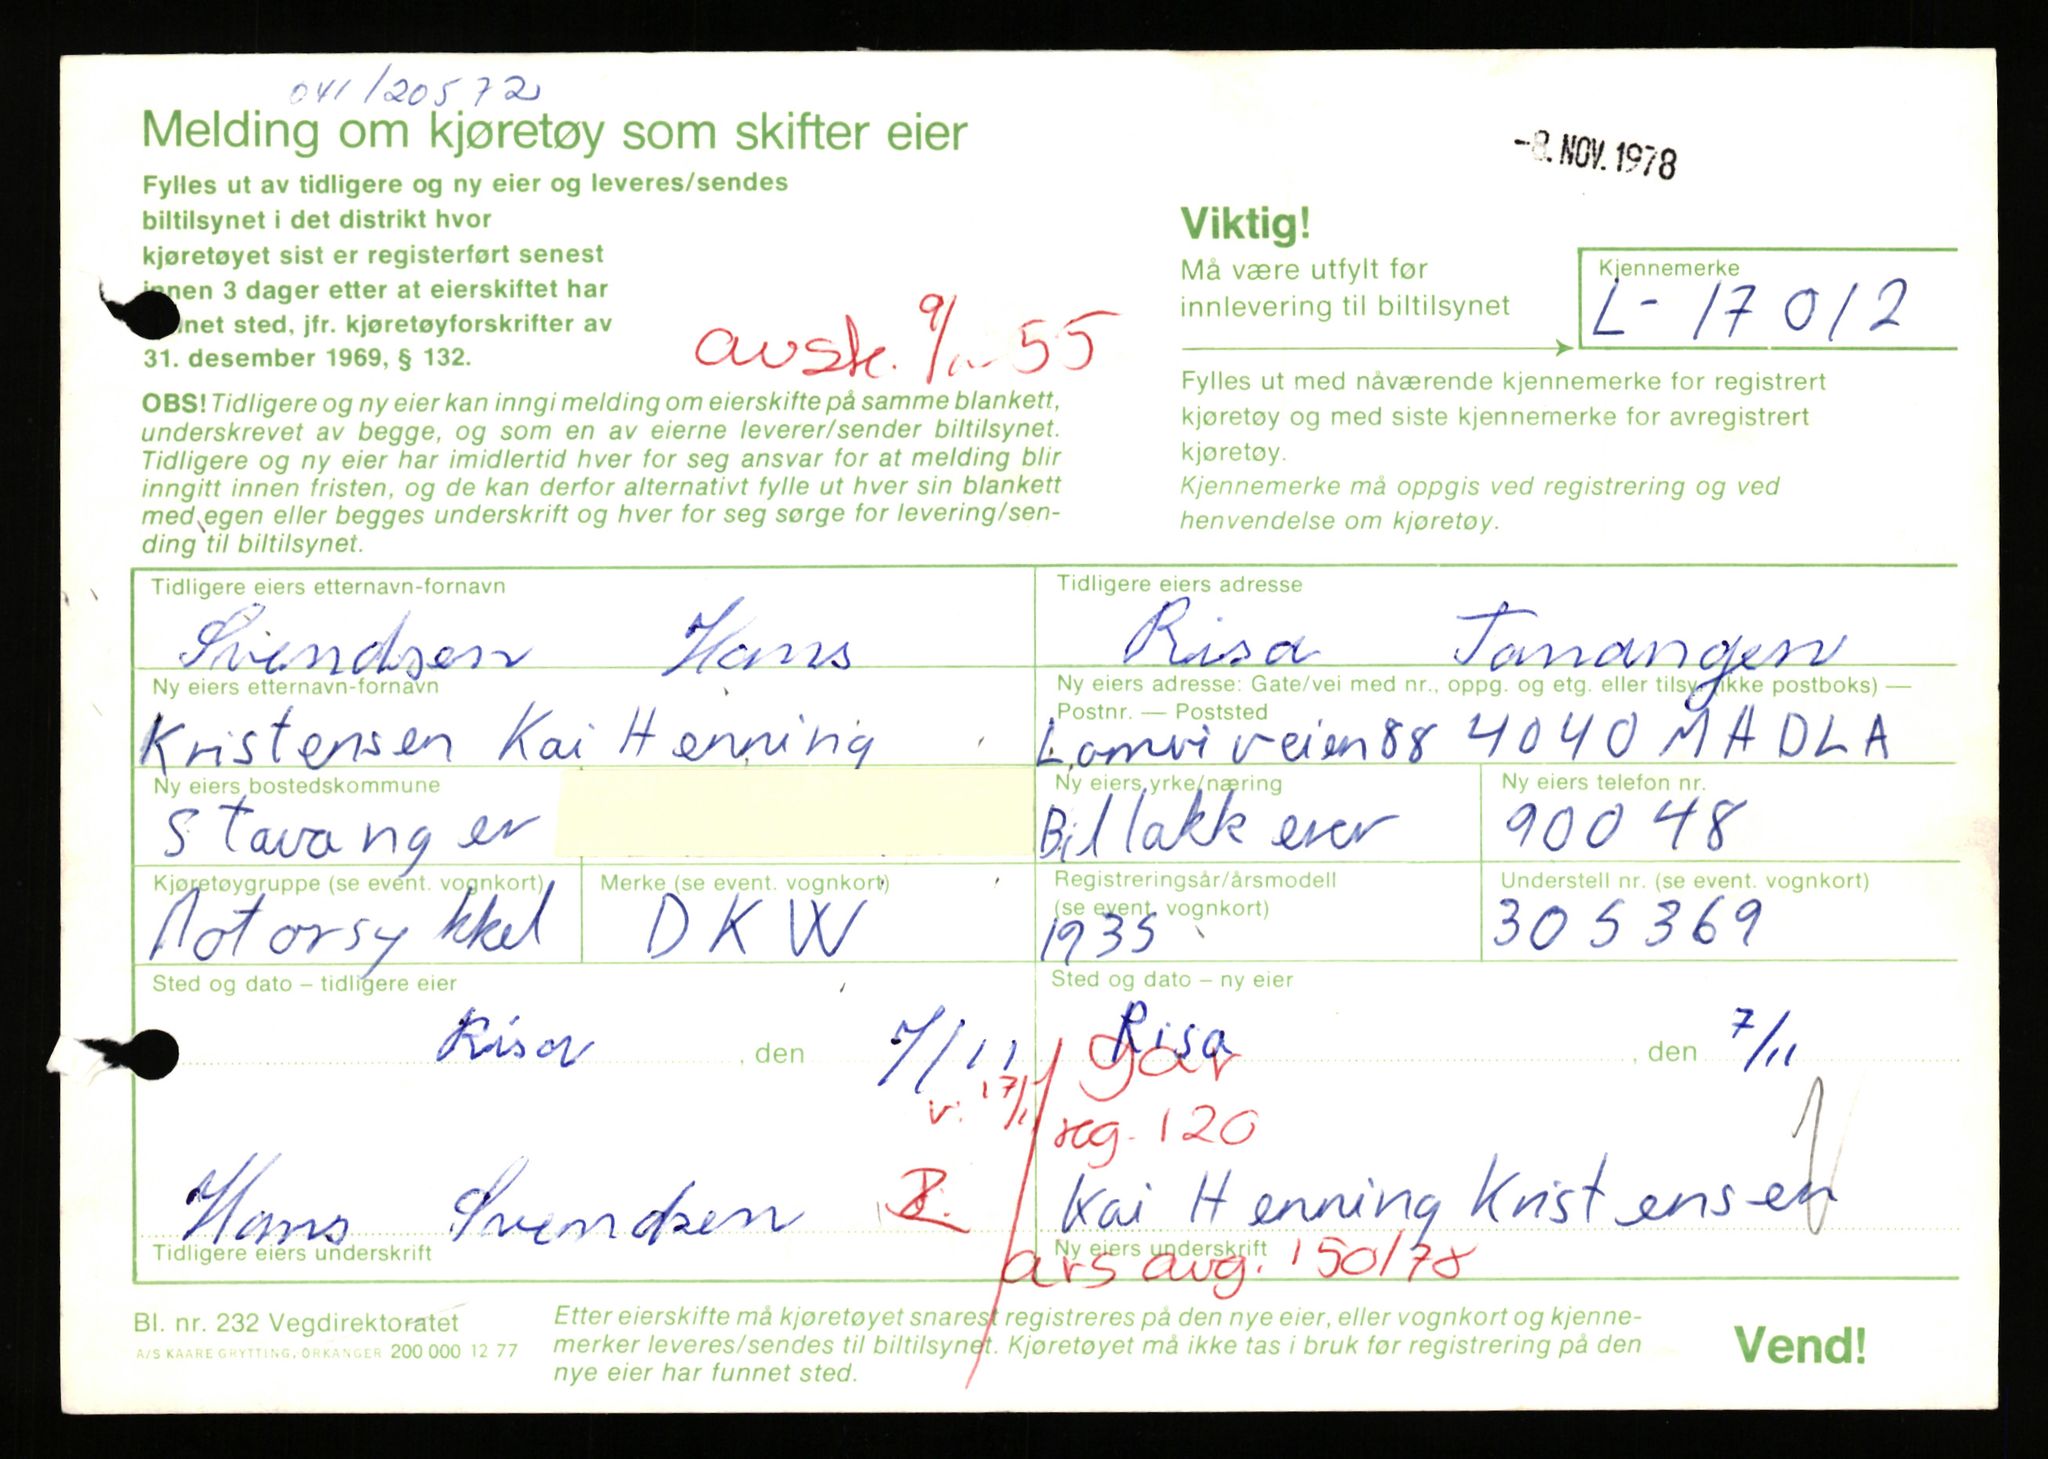 041/20572
Melding om kjøretøy som skifter eier
-8. NOV. 1978
Fylles ut av tidligere og ny eier og leveres/sendes
biltilsynet i det distrikt hvor
kjøretøyet sist er registerført senest
innen 3 dager etter at eierskiftet har
net sted, jfr. kjøretøyforskrifter av
31. desember 1969, § 132.
avsk. 9/ 55
Viktig!
Må være utfylt før
innlevering til biltilsynet
Kjennemerke
L-17012
OBS! Tidligere og ny eier kan inngi melding om eierskifte på samme blankett,
underskrevet av begge, og som en av eierne leverer/sender biltilsynet.
Tidligere og ny eier har imidlertid hver for seg ansvar for at melding blir
inngitt innen fristen, og de kan derfor alternativt fylle ut hver sin blankett
med egen eller begges underskrift og hver for seg sørge for levering/sen-
ding til biltilsynet.
Fylles ut med nåværende kjennemerke for registrert
kjøretøy og med siste kjennemerke for avregistrert
kjøretøy.
Kjennemerke må oppgis ved registrering og ved
henvendelse om kjøretøy.
Tidligere eiers etternavn-fornavn
Svendsen Hans
Tidligere eiers adresse
Risa Tanangen
Ny eiers etternavn-fornavn
Kristensen Kai Henning
Ny eiers adresse: Gate/vei med nr., oppg. og etg. eller tilsv. (ikke postboks) —
Postnr. — Poststed
Lomviveien 88 4040 MADLA
Ny eiers bostedskommune
Stavanger
Ny eiers yrke/næring
Billakkerer
Ny eiers telefon nr.
90048
Kjøretøygruppe (se event. vognkort)
Motorsykkel
Merke (se event. vognkort)
DKW
Registreringsår/årsmodell
(se event. vognkort)
1935
Understell nr. (se event. vognkort)
305369
Sted og dato – tidligere eier
Risa, den 7/11
Sted og dato – ny eier
Risa, den 7/11
v. 17/11
gar
reg. 120
Hans Svendsen
Tidligere eiers underskrift
Kai Henning Kristensen
Ny eiers underskrift
års avg. 150/78
Bl. nr. 232 Vegdirektoratet
A/S KAARE GRYTTING, ORKANGER 200 000 12 77
Etter eierskifte må kjøretøyet snarest registreres på den nye eier, eller vognkort og kjenne-
merker leveres/sendes til biltilsynet. Kjøretøyet må ikke tas i bruk før registrering på den
nye eier har funnet sted.
Vend!